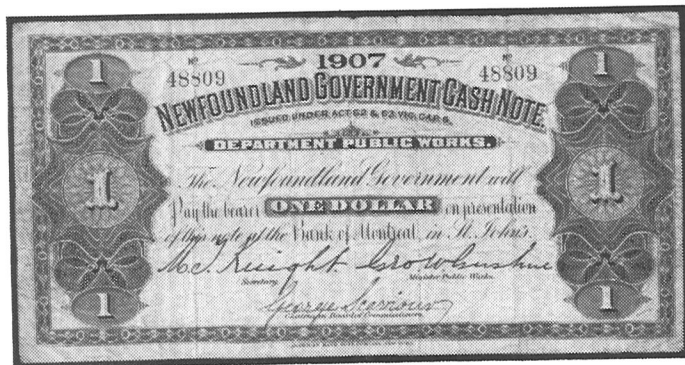 1907
1 No 48809 No 48809 1
NEWFOUNDLAND GOVERNMENT CASH NOTE.
ISSUED UNDER ACT 62 & 63 VIC. CAP. 6.
DEPARTMENT PUBLIC WORKS.
The Newfoundland Government will
1 Pay the bearer ONE DOLLAR on presentation 1
of this note at the Bank of Montreal, in St. John's.
Secretary. Minister Public Works.
1 George 1